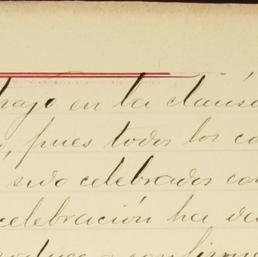 bajo en la clausu
, pues todos los co
sido celebrados con
celebración ha da